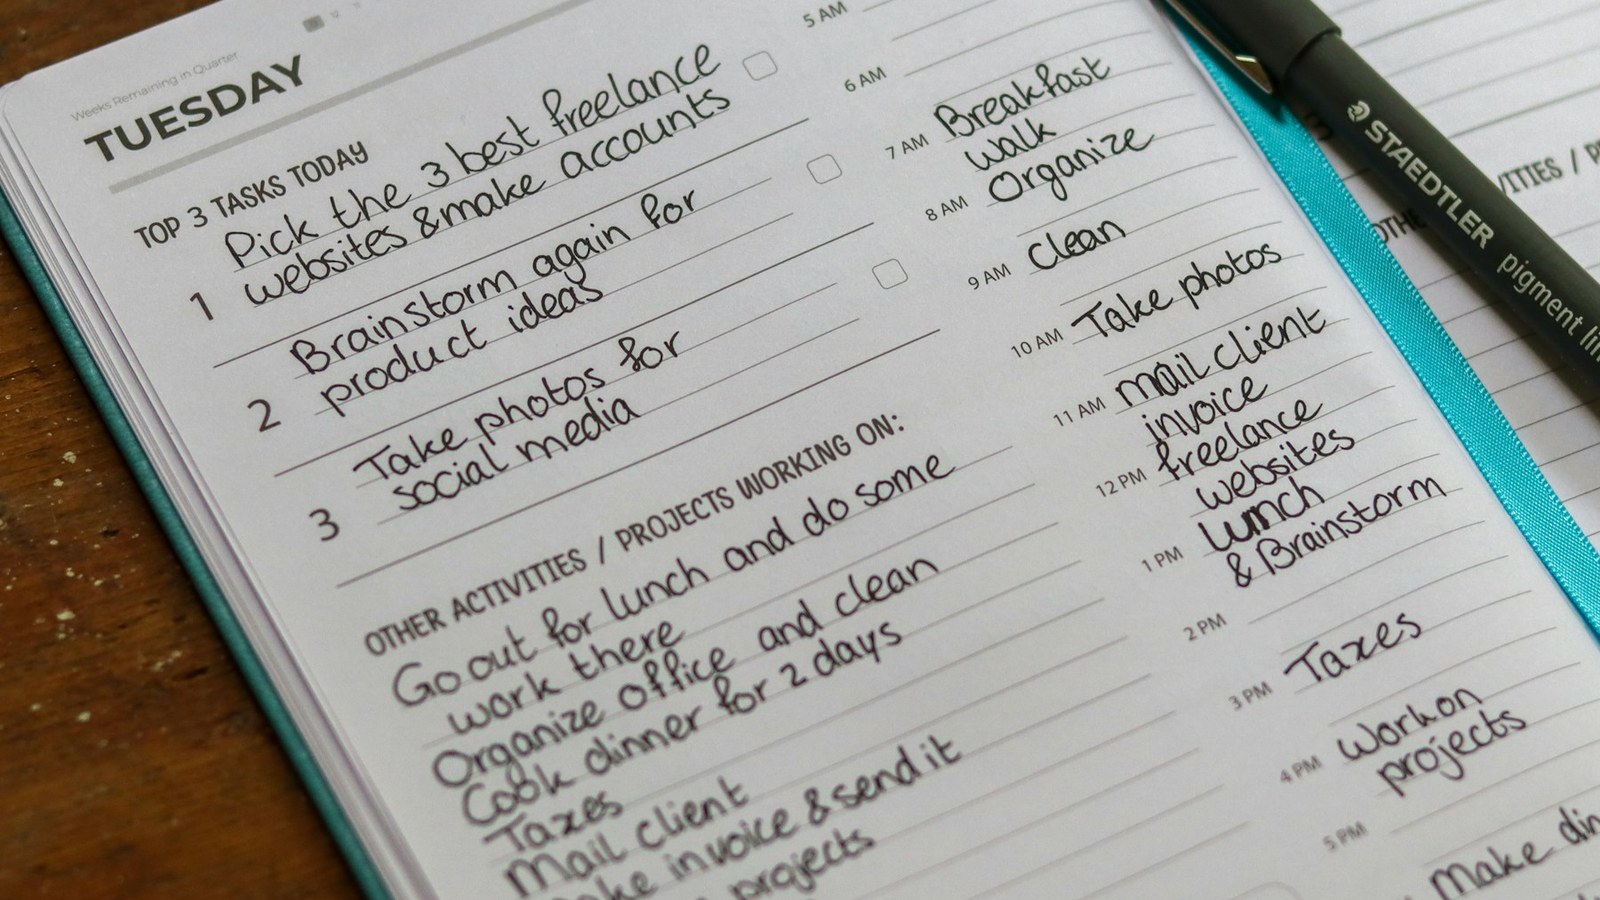 Weeks Remaining in Quarter
TUESDAY
TOP 3 TASKS TODAY
Pick the 3 best freelance
1 websites & make accounts
Brainstorm again for
2 product ideas
Take photos for
3 social media
OTHER ACTIVITIES / PROJECTS WORKING ON:
Go out for lunch and do some
work there
Organize office and clean
Cook dinner for 2 days
Taxes
Mail client
invoice & send it
projects
5 AM
6 AM
Breakfast
7 AM walk
8 AM Organize
9 AM Clean
10 AM Take photos
11 AM mail client
invoice
12 PM freelance
websites
1 PM lunch
& Brainstorm
2 PM
3 PM Taxes
4 PM work on
projects
5 PM
Make
STAEDTLER
pigment